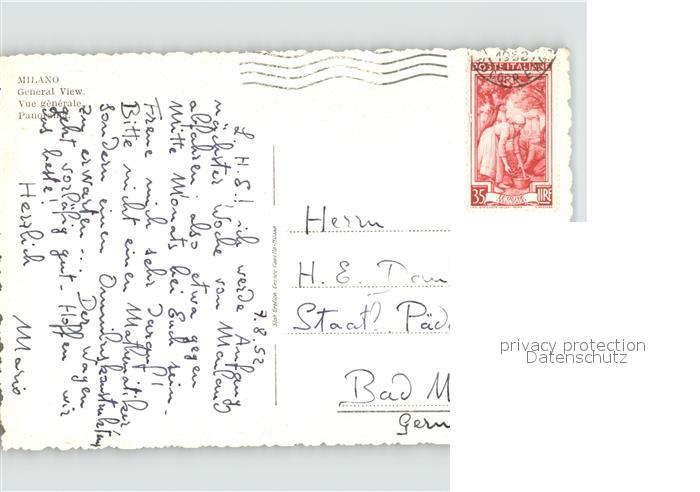 MILANO
General View.
Vue générale.
7.8.52
L. H. E.! ich werde Anfang
nächster Woche von Mailand
abfahren, also etwa gegen
Mitte Monats bei Euch sein.
Freue mich sehr darauf!
Bitte nicht einen Mathematiker
sondern einen Omnibuskonstrukteur
zu erwarten... Der Wagen
geht vorläufig gut - Hoffen wir
das beste!
Herzlich
Mario
1952
POSTE ITALIANE
35 LIRE
Herrn
H. E.
Staatl. Päd
Bad M
Germ
privacy protection
Datenschutz